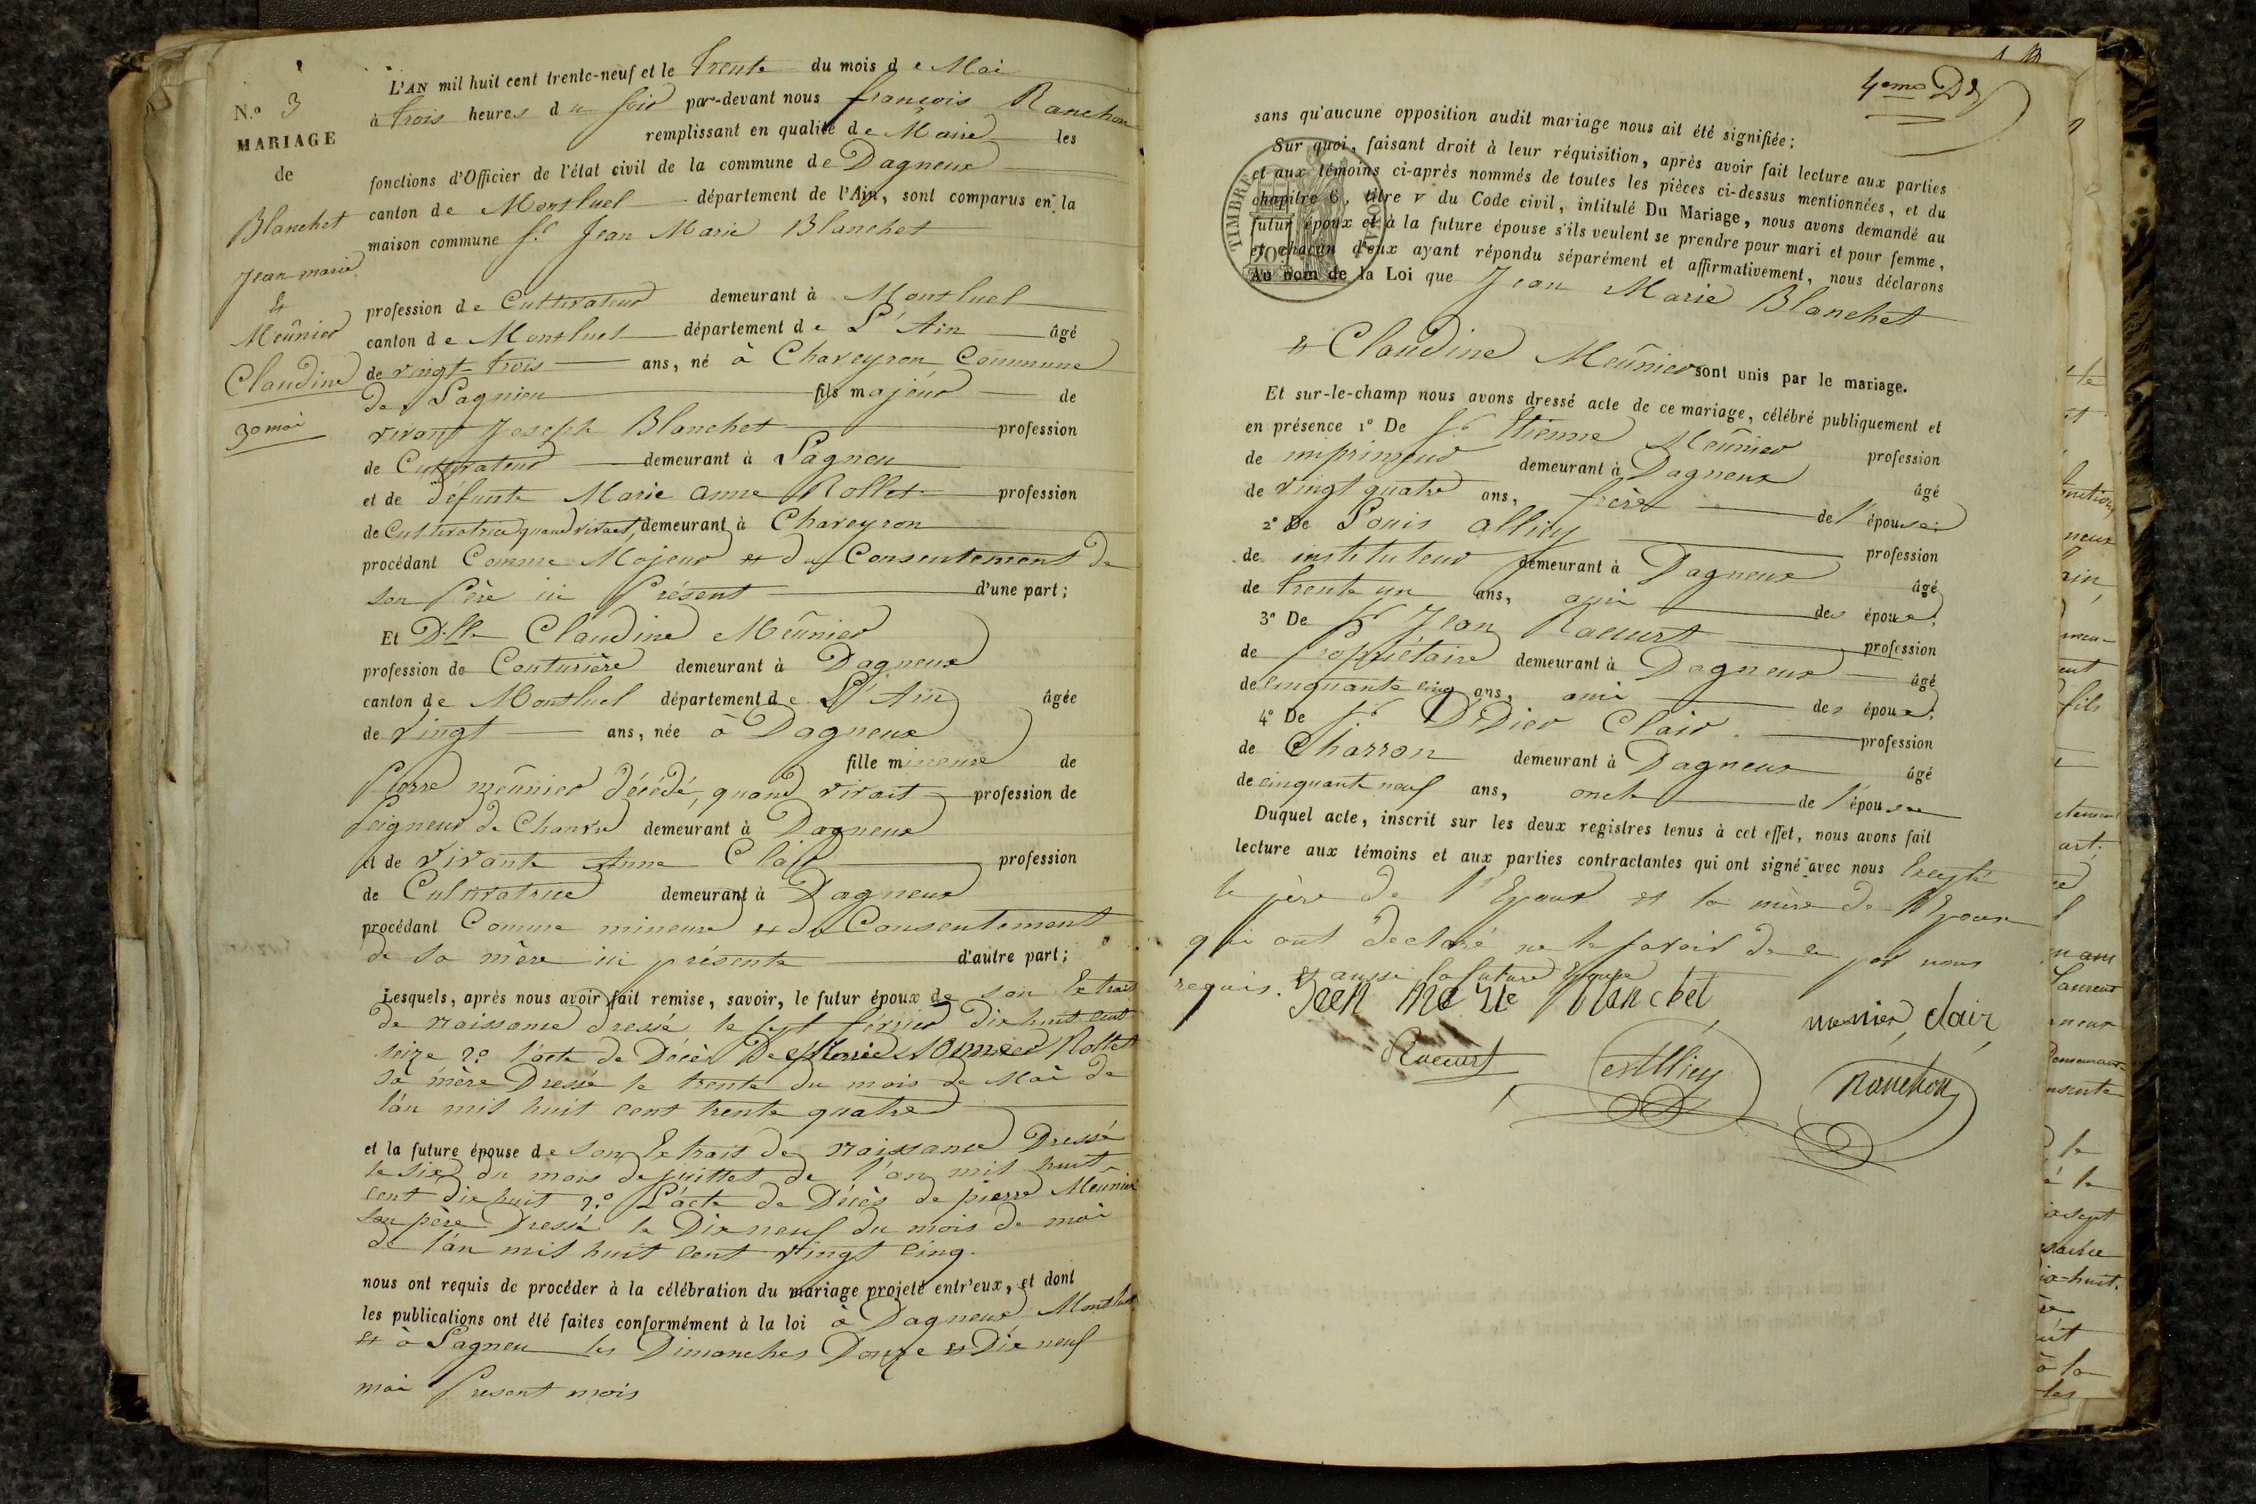 N.o 3
MARIAGE
de
Blanchet
Jean marie
&
Meûnier
Claudine
30 mai
L'AN mil huit cent trente-neuf et le trente du mois de Mai
à trois heures du soir par-devant nous françois Ranchon
remplissant en qualité de Maire les
fonctions d'Officier de l'état civil de la commune de Dagneux
canton de Montluel département de l'Ain, sont comparus en la
maison commune Sr. Jean Marie Blanchet
profession de Cultivateur demeurant à Montluel
canton de Montluel département de L'Ain âgé
de vingt-trois ans, né à Chaveyron Commune
de Lagnieu fils majeur de
vivant Joseph Blanchet profession
de Cultivateur demeurant à Lagneu
et de défunte Marie anne Rollet profession
de Cultivatrice quand vivait, demeurant à Chaveyron
procédant Comme Majeur & du Consentement de
son Père ici Présent d'une part;
Et Dlle Claudine Meûnier
profession de Couturière demeurant à Dagneux
canton de Montluel département de L'Ain âgée
de vingt ans, née à Dagneux
fille mineure de
Pierre meûnier décédé, quand vivait profession de
Peigneur de Chanvre demeurant à Dagneux
et de vivante Anne Clair profession
de Cultivatrice demeurant à Dagneux
procédant Comme mineure & du Consentement
de sa mère ici présente d'autre part;
Lesquels, après nous avoir fait remise, savoir, le futur époux de son Extrait
de naissance dressé le sept février dix huit cent
seize 2.o l'acte de Décès De Marie Rollet
sa mère Dressé le trente du mois de Mai de
l'an mil huit cent trente quatre
et la future épouse de son Extrait de naissance Dressé
le six du mois de juillet de l'an mil huit
cent dix huit 2.o L'acte de Décès de pierre Meûnier
son père Dressé le Dix neuf du mois de mai
de l'an mil huit cent vingt cinq.
nous ont requis de procéder à la célébration du mariage projeté entr'eux, et dont
les publications ont été faites conformément à la loi à Dagneux Montluel
& à Lagneu les Dimanches Douze & Dix neuf
mai Present mois
4eme
sans qu'aucune opposition audit mariage nous ait été signifiée;
Sur quoi, faisant droit à leur réquisition, après avoir fait lecture aux parties
et aux témoins ci-après nommés de toutes les pièces ci-dessus mentionnées, et du
chapitre 6, titre v du Code civil, intitulé Du Mariage, nous avons demandé au
futur époux et à la future épouse s'ils veulent se prendre pour mari et pour femme,
et chacun d'eux ayant répondu séparément et affirmativement, nous déclarons
Au nom de la Loi que Jean Marie Blanchet
& Claudine Meûnier sont unis par le mariage.
Et sur-le-champ nous avons dressé acte de ce mariage, célébré publiquement et
en présence 1o De Sr. Etienne Meûnier profession
de imprimeur demeurant à Dagneux âgé
de vingt quatre ans, frère de l'épouse;
2o De Louis alliey profession
de instituteur demeurant à Dagneux âgé
de trente un ans, ami des époux;
3o De Sr Jean Racurt profession
de Propriétaire demeurant à Dagneux âgé
de cinquante cinq ans, ami des époux;
4o De Sr. Didier Clair profession
de Charron demeurant à Dagneux âgé
de cinquante neuf ans, oncle de l'épouse
Duquel acte, inscrit sur les deux registres tenus à cet effet, nous avons fait
lecture aux témoins et aux parties contractantes qui ont signé avec nous Excepté
le père de l'Epoux & la mère de l'Epouse
qui ont declaré ne le savoir de ce par nous
requis. & aussi la future Epouse
Jeen marie Blanchet
menier clair
Racurt
Alliey
Ranchon
TIMBRE ROYAL